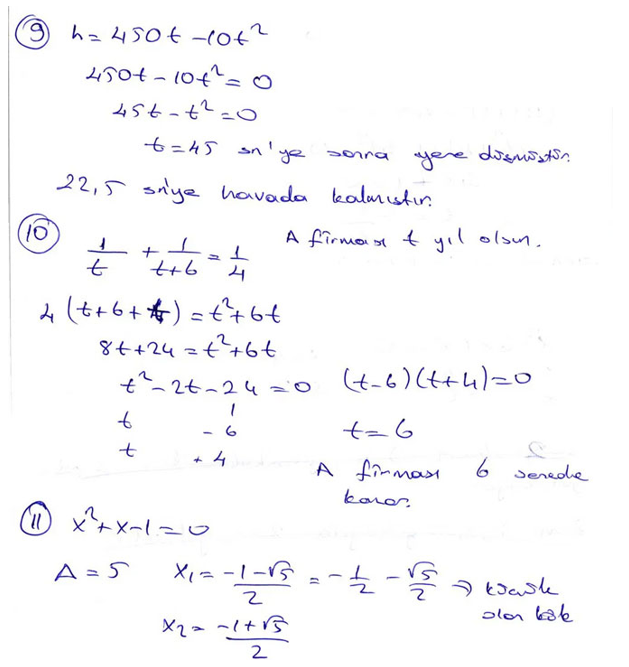 9 h = 450t - 10t²
450t - 10t² = 0
45t - t² = 0
t = 45 sn'ye sonra yere düşmüştür.
22,5 sn'ye havada kalmıştır.
10 1/t + 1/(t+6) = 1/4 A firması t yıl olsun.
4 (t+6+t) = t²+6t
8t+24 = t²+6t
t² - 2t - 24 = 0 (t-6)(t+4)=0
t - 6 t = 6
t + 4
A firması 6 senede
kazar.
11 x² + x - 1 = 0
Δ = 5 x₁ = (-1-√5)/2 = -1/2 - √5/2 ⇒ küçük
olan kök
x₂ = (-1+√5)/2